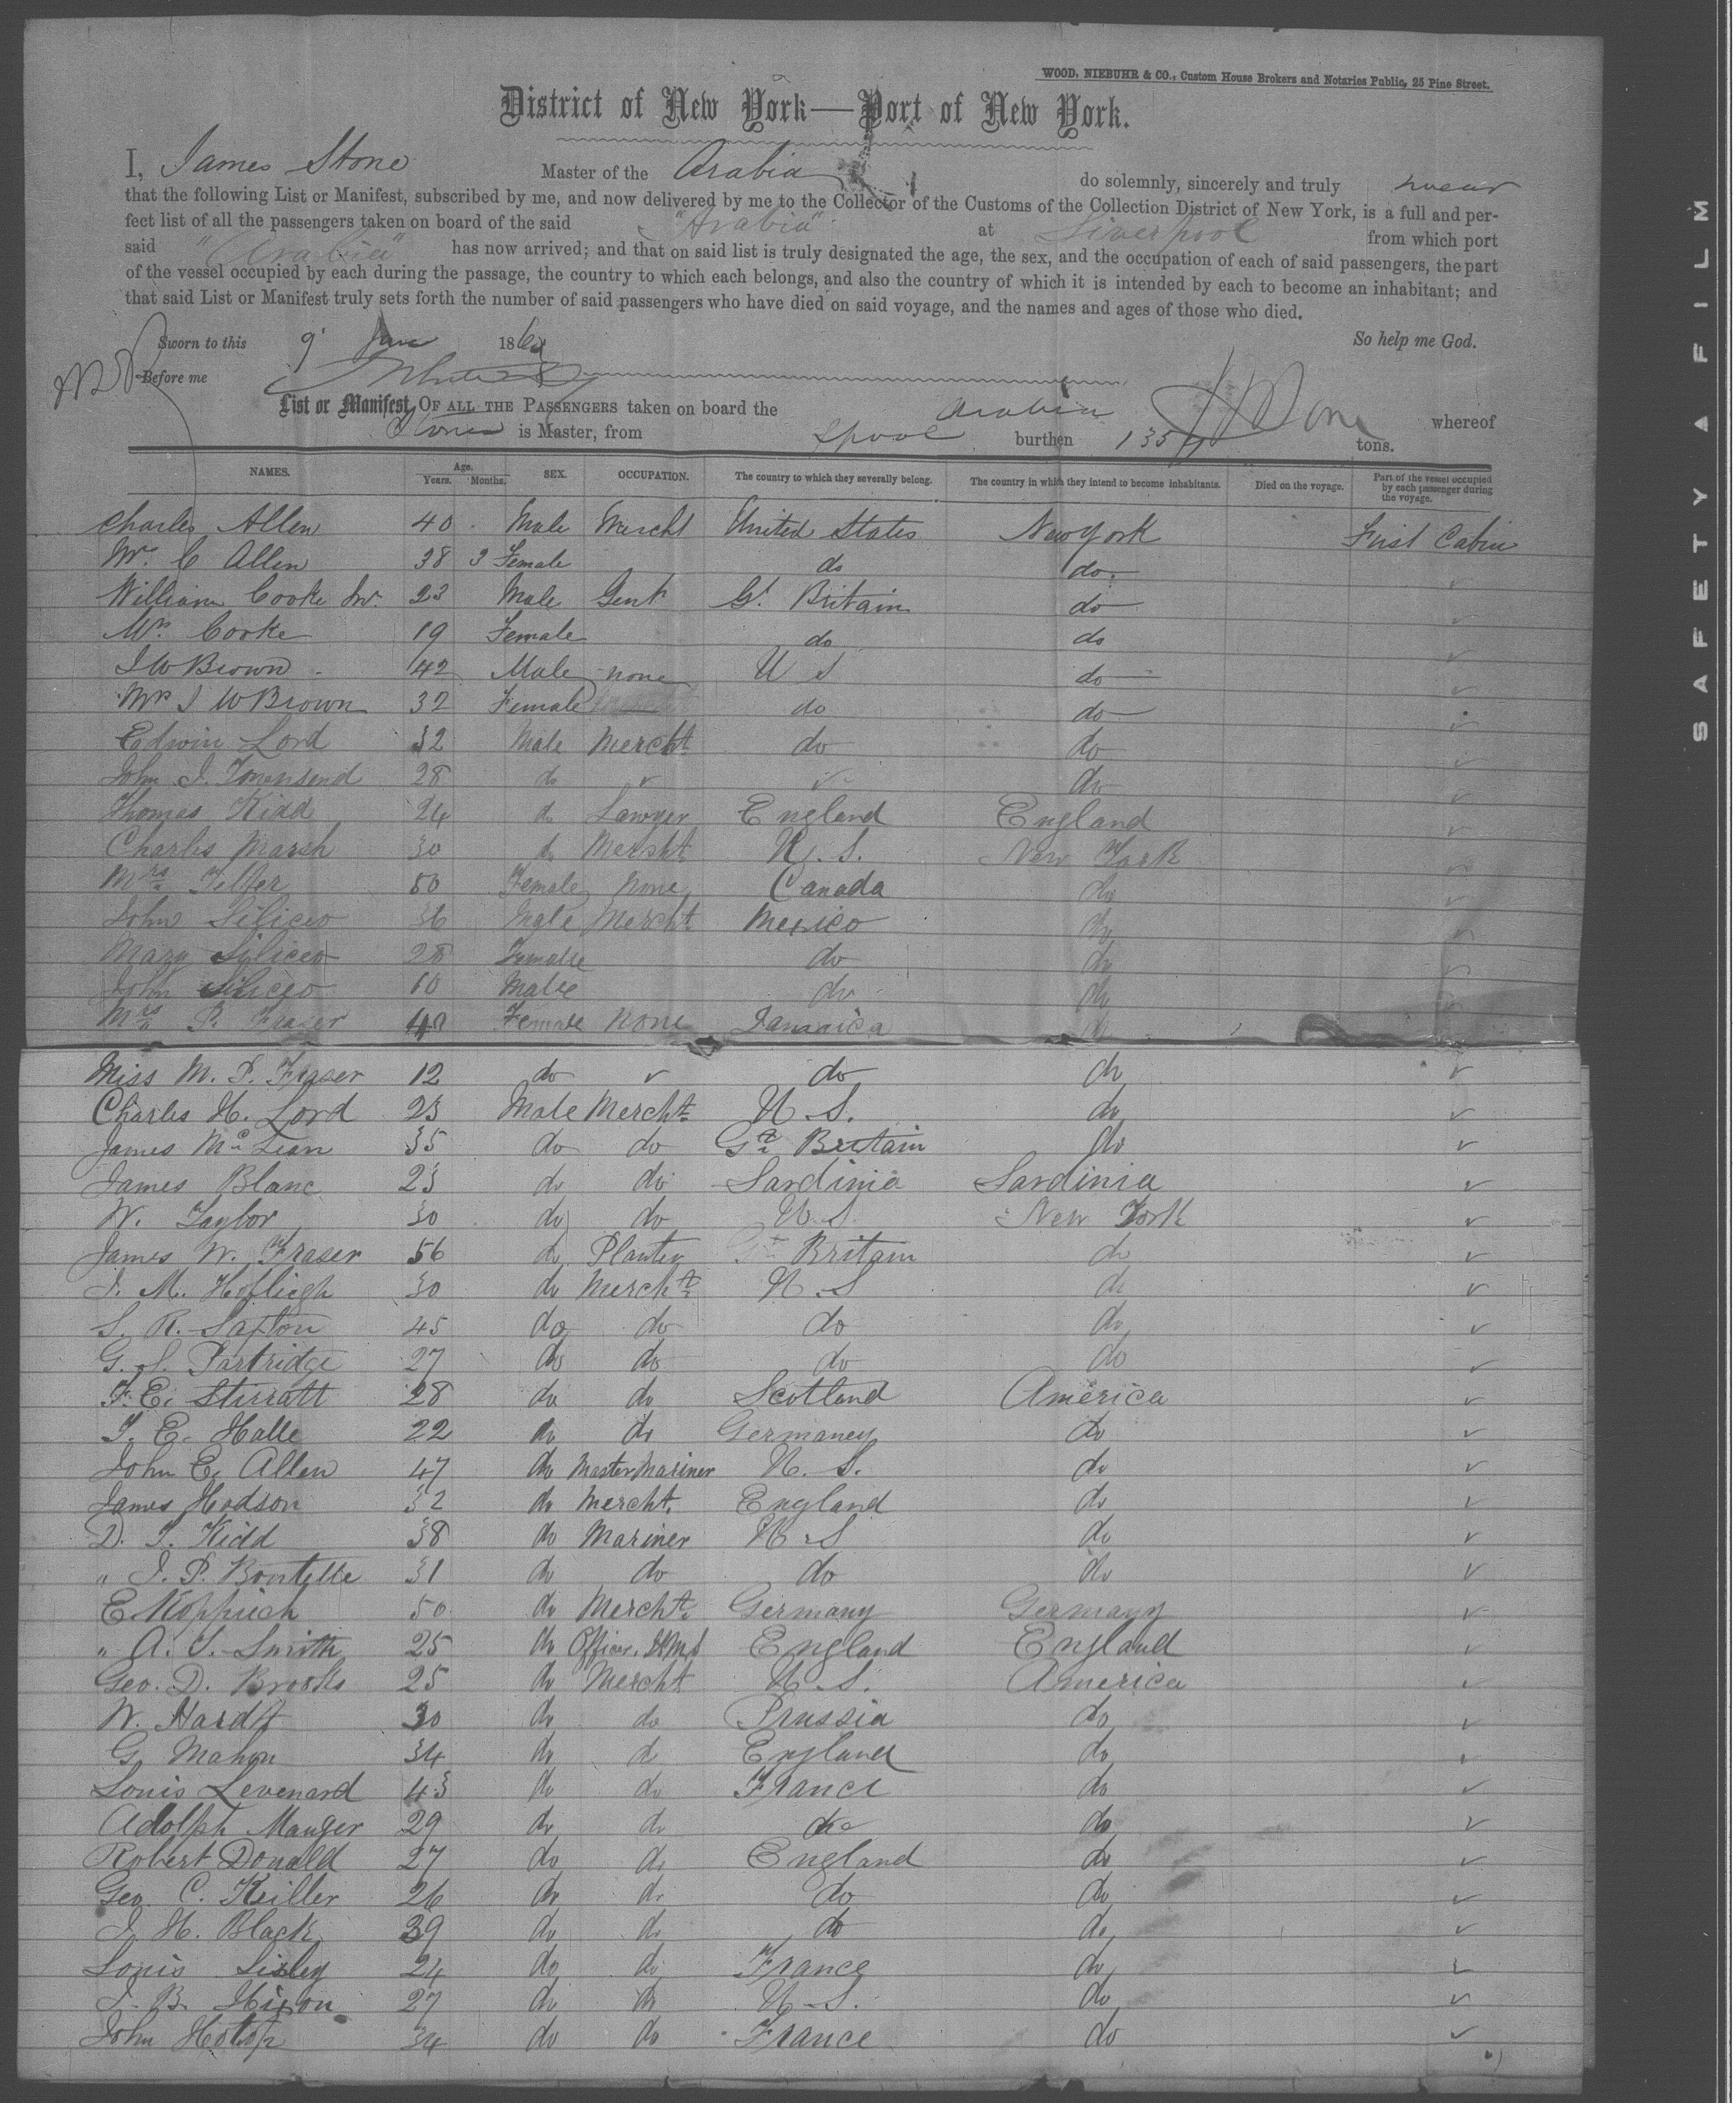 WOOD, NIEBUHR & CO., Custom House Brokers and Notaries Public, 25 Pine Street.
District of New York—Port of New York.
I, James Stone Master of the Arabia do solemnly, sincerely and truly swear
that the following List or Manifest, subscribed by me, and now delivered by me to the Collector of the Customs of the Collection District of New York, is a full and per-
fect list of all the passengers taken on board of the said "Arabia" at Liverpool from which port
said "Arabia" has now arrived; and that on said list is truly designated the age, the sex, and the occupation of each of said passengers, the part
of the vessel occupied by each during the passage, the country to which each belongs, and also the country of which it is intended by each to become an inhabitant; and
that said List or Manifest truly sets forth the number of said passengers who have died on said voyage, and the names and ages of those who died.
Sworn to this 9 186 So help me God.
Before me
List or Manifest OF ALL THE PASSENGERS taken on board the Arabia whereof
Stone is Master, from Lpool burthen tons.
NAMES. Age. Years. Months. SEX. OCCUPATION. The country to which they severally belong. The country in which they intend to become inhabitants. Died on the voyage. Part of the vessel occupied by each passenger during the voyage.
Charles Allen 40 Male Mercht United States New York First Cabin
Mrs C Allen 38 3 Female do do
William Cooke Jnr. 23 Male Gent Gt Britain do
Mrs Cooke 19 Female do do
J W Brown 42 Male none U S do
Mrs J W Brown 32 Female do do
Edwin Lord 32 Male Mercht do do
John J. Townsend 28 do do
Thomas Kidd 24 do Lawyer England England
Charles Marsh 30 do Mercht U.S. New York
Mrs Telfer 50 Female None Canada do
John Siliceo 36 Male Mercht Mexico do
Mary Siliceo 28 Female do do
John Siliceo 10 Male do do
Mrs P. Fraser 40 Female None Jamaica do
Miss M. P. Fraser 12 do do do
Charles H. Lord 23 Male Mercht U.S. do
James McLean 35 do do Gt Britain do
James Blanc 23 do do Sardinia Sardinia
W. Taylor 30 do do U.S. New York
James W. Fraser 56 do Planter Gt Britain do
J. M. 30 do Mercht U.S do
S. R. Saxton 45 do do do do
G. S. Partridge 27 do do do do
F. E. Stirratt 28 do do Scotland America
F. E. Halle 22 do do Germaney do
John E. Allen 47 do Master Mariner U.S. do
James Hodson 32 do Mercht. England do
D. T. Kidd 38 do Mariner U.S do
" J. P. Boutelle 31 do do do do
E. Koppisch 50 do Mercht. Germany Germany
" A. J. Smith 25 do Officer. H.M.S England England
Geo. D. Brooks 25 do Mercht U.S. America
W. Hardt 30 do do Prussia do
G. Mahon 34 do do England do
Louis Levenard 43 do do France do
Adolph Mauger 29 do do do do
Robert Donald 27 do do England do
Geo. C. Keiller 26 do do do do
J. H. Black 39 do do do do
Louis Sisley 24 do do France do
J. B. Hixon 27 do do U.S. do
John Hotop 34 do do France do
SAFETY FILM